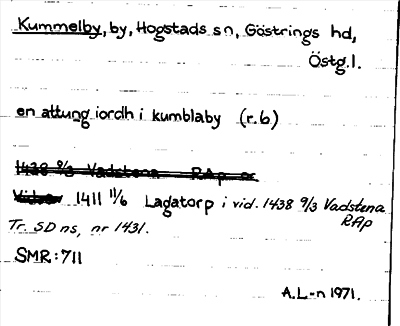 Kummelby, by, Hogstads sn, Göstrings hd,
Östg.l.
en attung iordh i kumblaby (r. 6)
1438 9/3 Vadstena RAp or
1411 11/6 Lagatorp i vid. 1438 9/3 Vadstena
RAp
Tr. SD ns, nr 1431.
SMR: 711
A.L-n 1971.